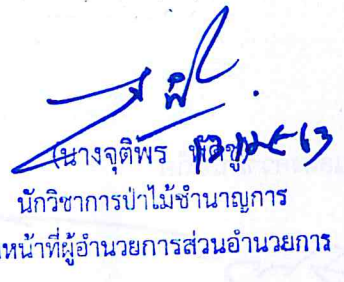 (นางจุติพร
นักวิชาการป่าไม้ชำนาญการ
หน้าที่ผู้อำนวยการส่วนอำนวยการ